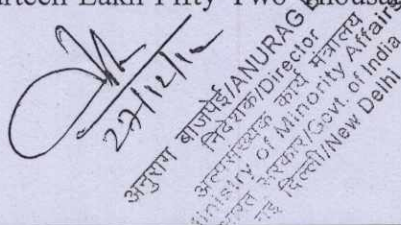 Lakh Fifty Two
अनुराग बाजपेई/ANURAG
निदेशक/Director
अल्पसंख्यक कार्य मंत्रालय
Ministry of Minority Affairs
भारत सरकार/Govt. of India
नई दिल्ली/New Delhi